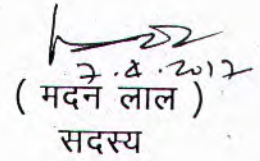 7.4.2017
( मदन लाल )
सदस्य